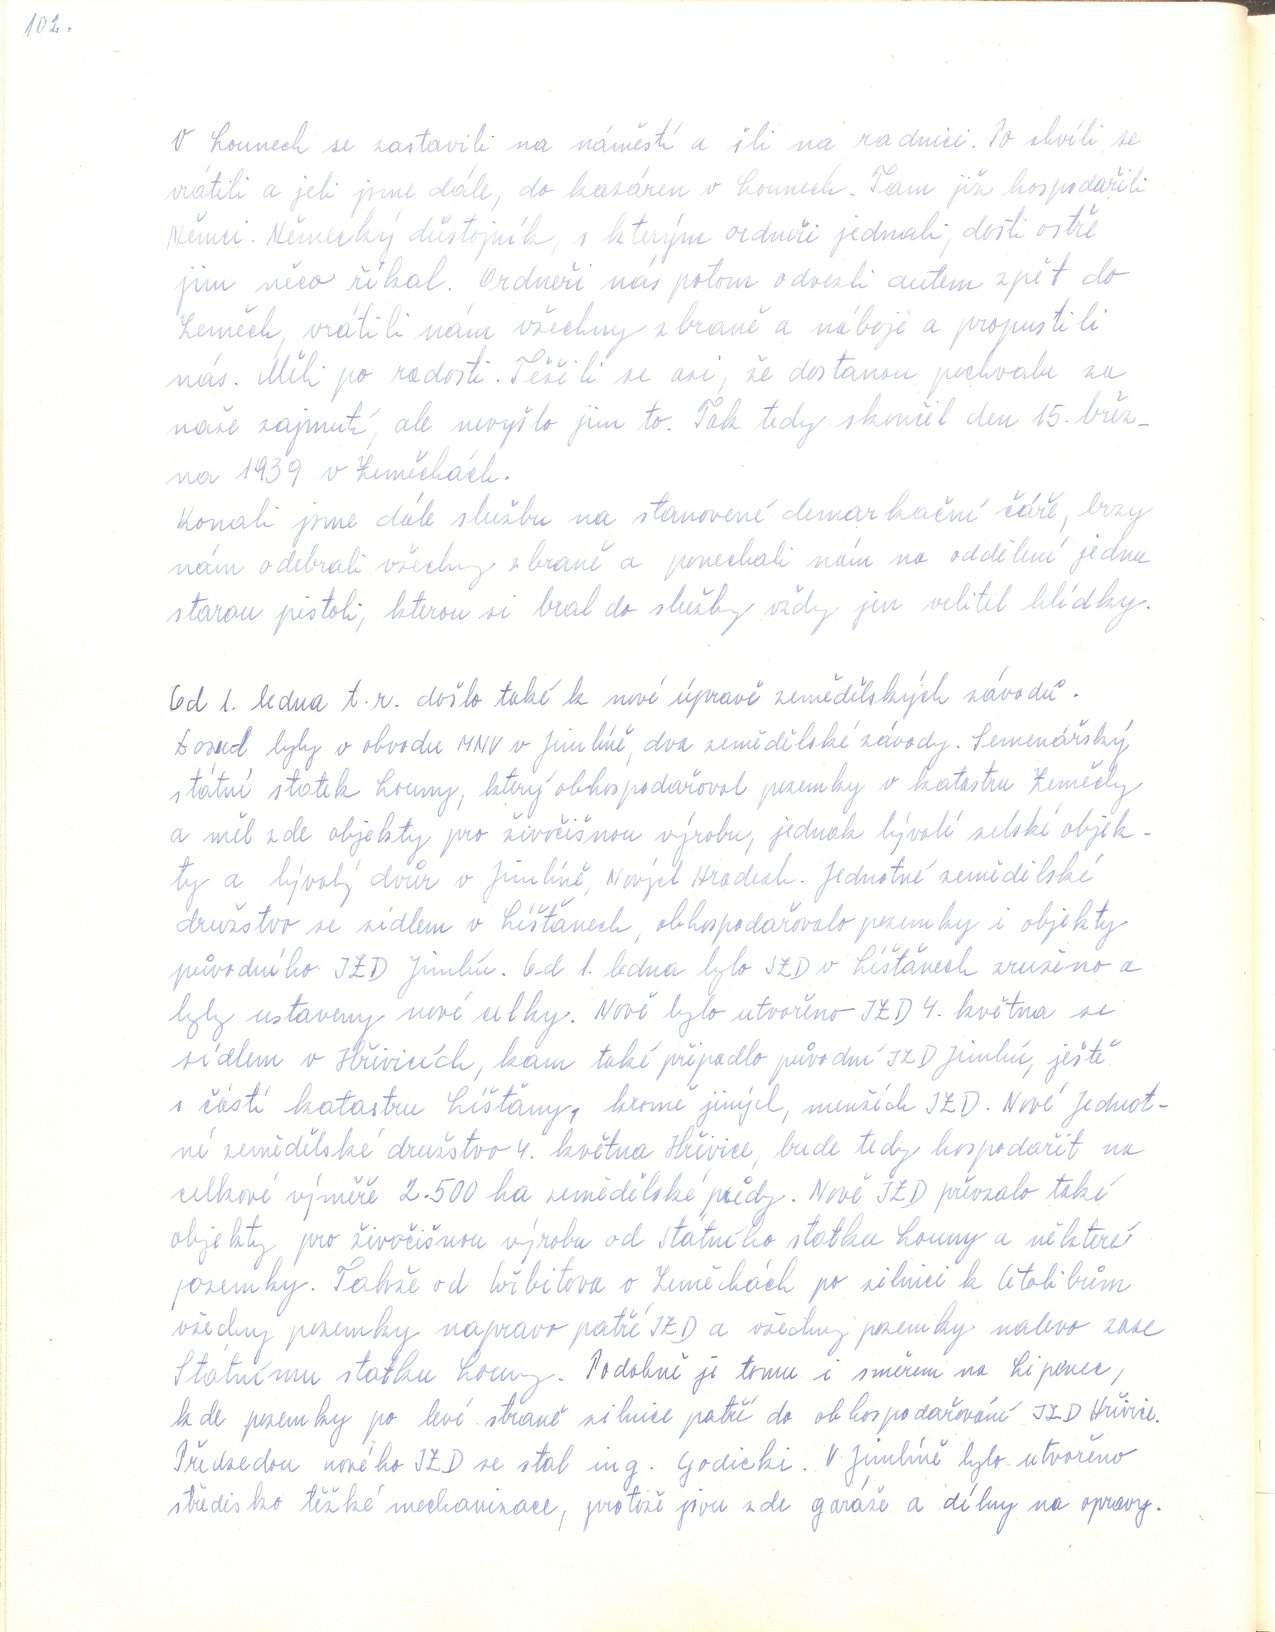 102.
V Lounech se zastavili na náměstí a šli na radnici. Po chvíli se
vrátili a jeli jsme dále, do kasáren v Lounech. Tam již hospodařili
Němci. Německý důstojník, s kterým ordneři jednali, dosti ostře
jim něco říkal. Ordneři nás potom odvezli autem zpět do
Zeměch, vrátili nám všechny zbraně a náboje a propustili
nás. Měli po radosti. Těšili se asi, že dostanou pochvalu za
naše zajmutí, ale nevyšlo jim to. Tak tedy skončil den 15. břez-
na 1939 v Zeměchách.
Konali jsme dále službu na stanovené demarkační čáře, brzy
nám odebrali všechny zbraně a ponechali nám na oddělení jednu
starou pistoli, kterou si bral do služby vždy jen velitel hlídky.
Od 1. ledna t.r. došlo také k nové úpravě zemědělských závodů.
Dosud byly v obvodu MNV v Jimlíně, dva zemědělské závody. Semenářský
státní statek Louny, který obhospodařoval pozemky v katastru Zeměchy
a měl zde objekty pro živočišnou výrobu, jednak bývalé selské objek-
ty a bývalý dvůr v Jimlíně, Nových Hradech. Jednotné zemědělské
družstvo se sídlem v Líšťanech, obhospodařovalo pozemky i objekty
původního JZD Jimlín. Od 1. ledna bylo JZD v Líšťanech zrušeno a
byly ustaveny nové celky. Nově bylo utvořeno JZD 4. května se
sídlem v Hřivicích, kam také připadlo původní JZD Jimlín, ještě
s částí katastru Líšťany, kromě jiných, menších JZD. Nové Jednot-
né zemědělské družstvo 4. května Hřivice, bude tedy hospodařit na
celkové výměře 2.500 ha zemědělské půdy. Nové JZD převzalo také
objekty pro živočišnou výrobu od Státního statku Louny a některé
pozemky. Takže od hřbitova v Zeměchách po silnici k Cítolibům
všechny pozemky napravo patří JZD a všechny pozemky nalevo zase
Státnímu statku Louny. Podobně je tomu i směrem na Lipenec,
kde pozemky po levé straně silnice patří do obhospodařování JZD Hřivice.
Předsedou nového JZD se stal ing. Godicki. V Jimlíně bylo utvořeno
středisko těžké mechanizace, protože jsou zde garáže a dílny na opravy.